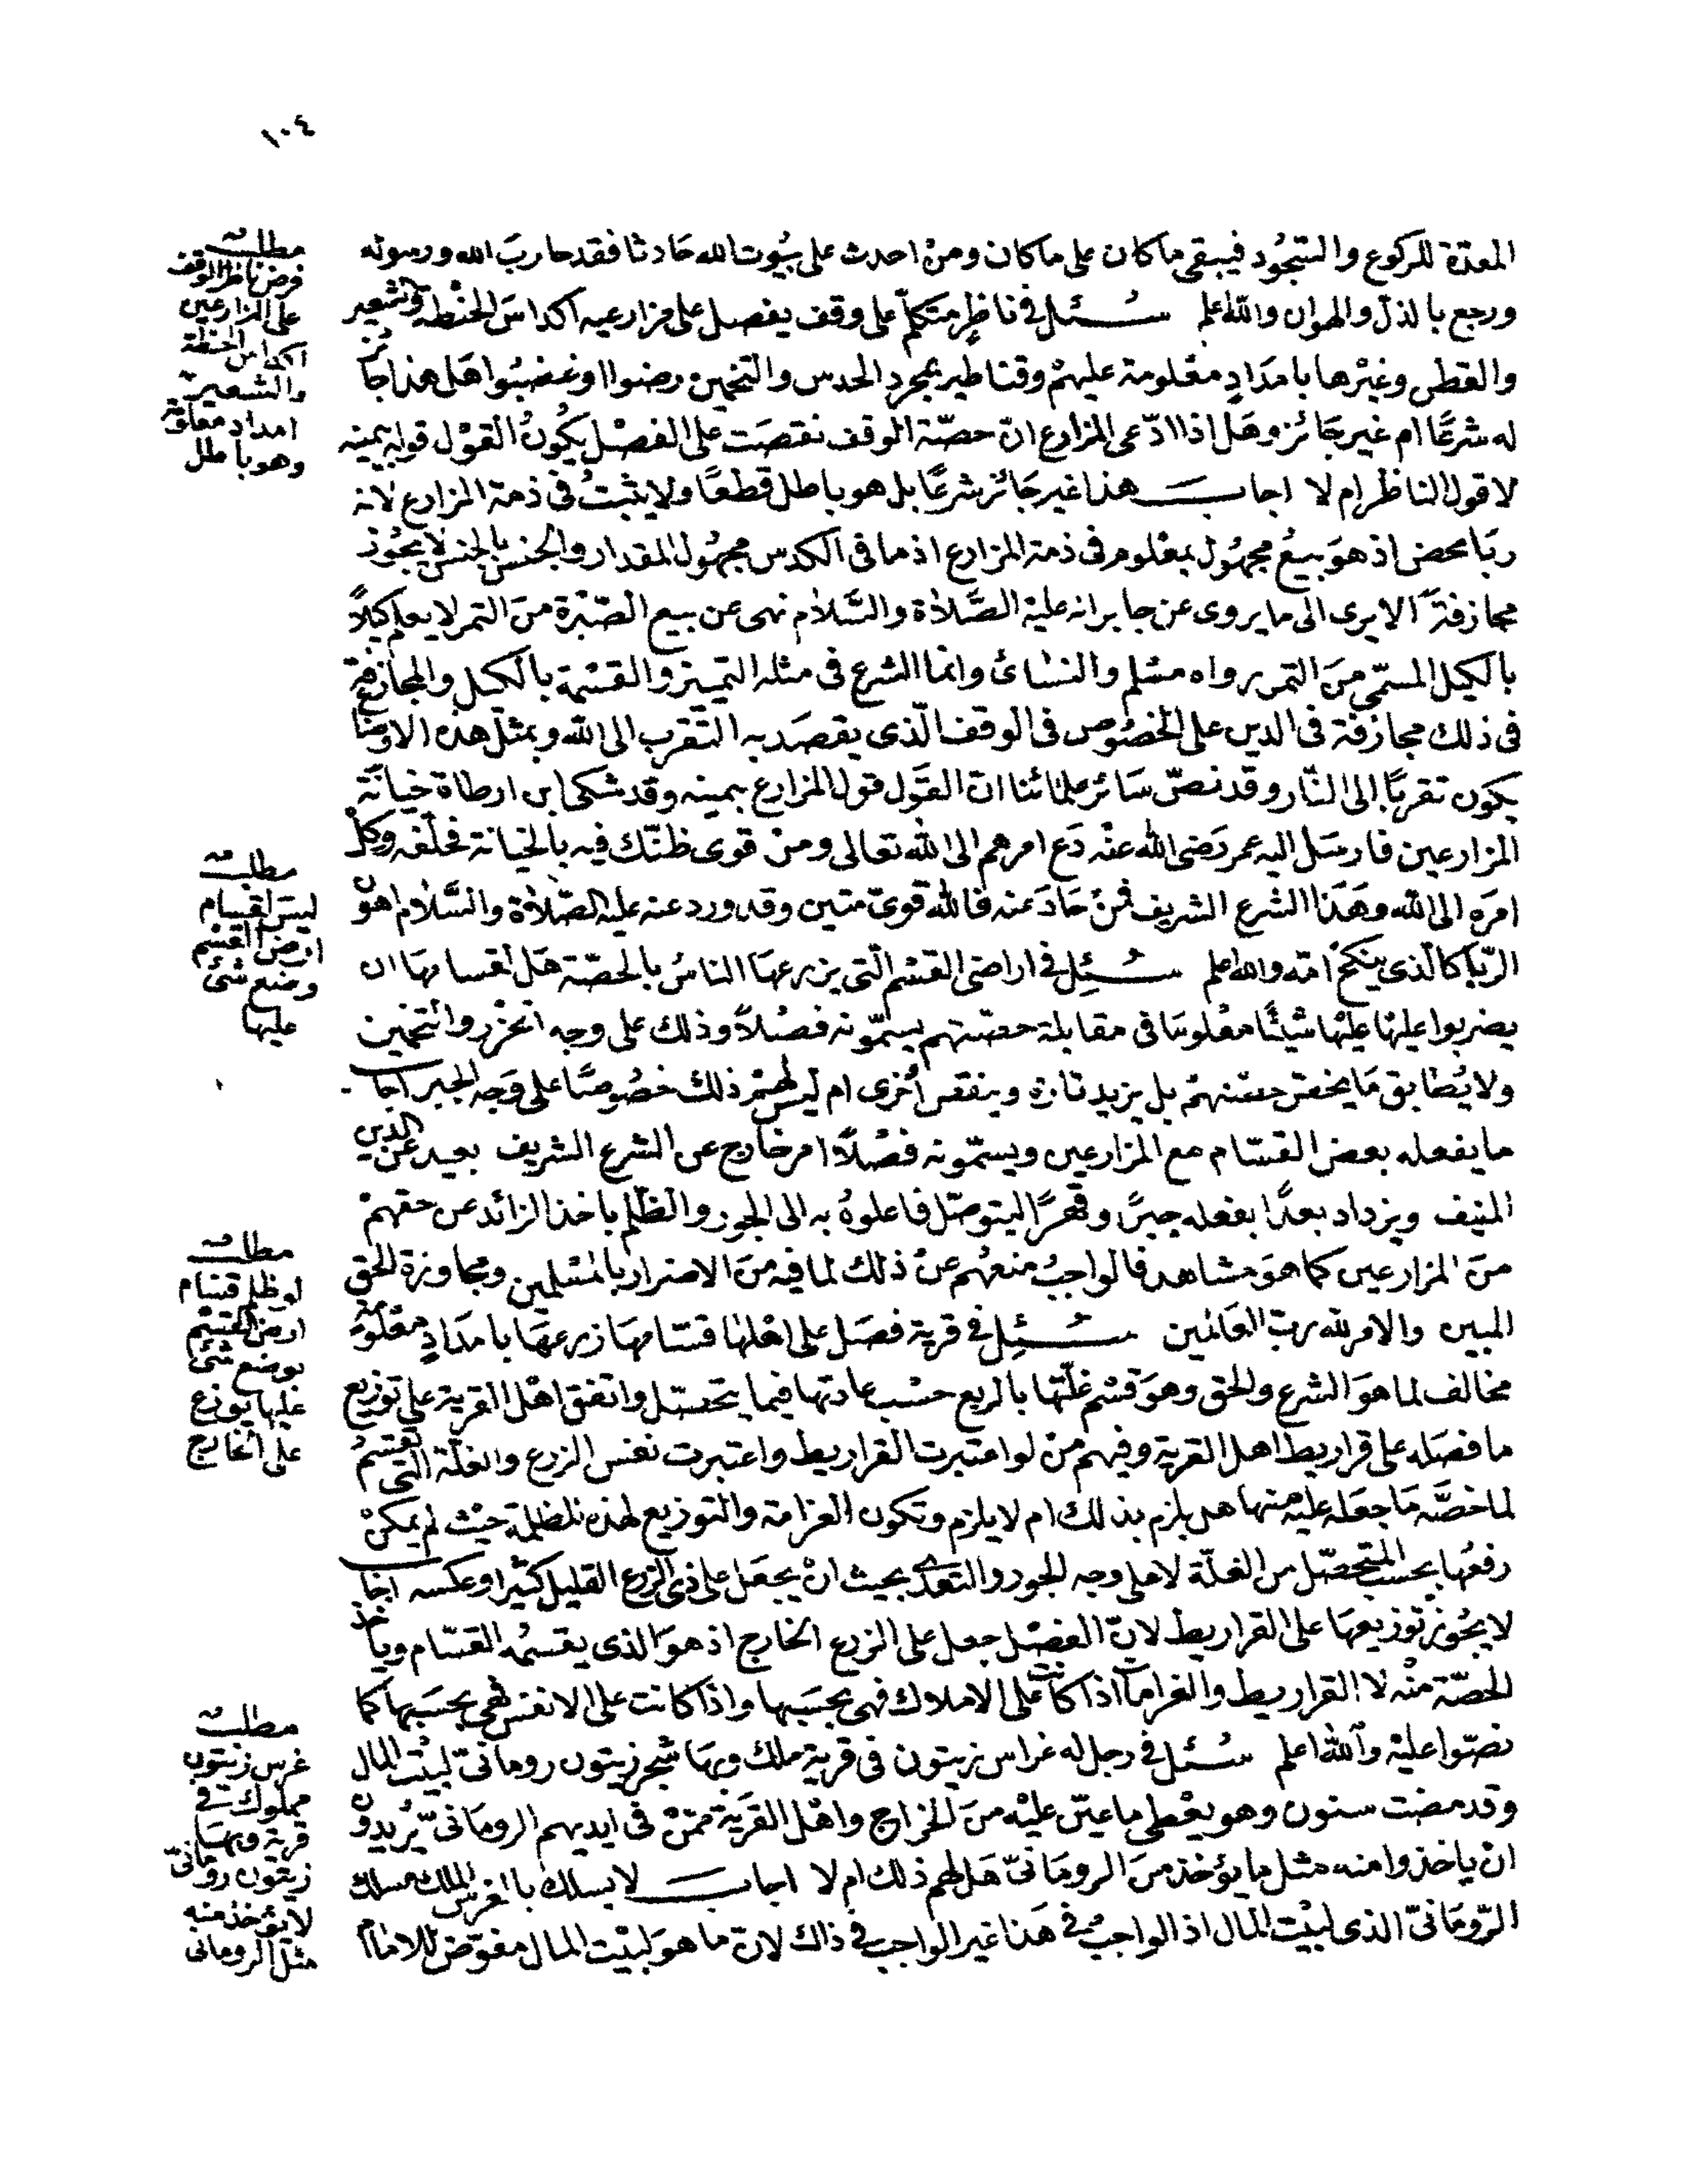 ١٠٤
المعدّة للركوع والسّجُود فيبقى ما كان على ما كان ومن احدث على بيُوت الله حَادثا فقد حاربَ الله ورسوله
ورجع بالذل والهوان والله اعلم سُئل في ناظرٍ متكلّم على وقف يفصل على مزارعيه اكداسَ الحنْطة والشعير
والقطن وغيْرها بامدَادٍ معْلومة عليهمْ وقناطير بمجرد الحدس والتخمين رضوا او غضبُوا هَل هذا جائز
له شرعًا ام غير جَائز وهَل اذا ادّعى المزارع انّ حصّة الوقف نقصَت على الفصْل يكُونُ القوْل قوله بيمينه
لا قول الناظر ام لا اجاب هذا غير جَائز شرعًا بل هو باطل قطعًا ولا يثبتُ فى ذمة المزارع لانه
ربَا محض اذ هوَ بيعُ مجهُول بمعْلوم فى ذمة المزارع اذ ما فى الكدس مجهُول المقدار والجنس بالجنس لا يجُوز
مجازفةً الا يرى الى ما يروى عن جابر انه عليْه الصَّلاة والسَّلام نهى عن بيع الصّبْرة منَ التمر لا يعلم كيلاً
بالكيل المسمّى منَ التمر رواه مسْلم والنسائ وانما الشرع فى مثله التمييز والقسْمة بالكيل والمجازفة
فى ذلك مجازفة فى الدين على الخصُوص فى الوقف الّذى يقصَد به التقرب الى الله وبمثل هذه الاوضاع
يكون تقربًا الى النّار وقد نصّ سَائر علمائنا انّ القَول قول المزارع بيمينه وقد شكى ابن ارطاة خيانَة
المزارعين فارسَل اليه عمر رَضى الله عنْه دَع امرهم الى الله تعالى ومنْ قوى ظنّك فيه بالخيانة فحلّفه وكِلْ
امرَه الى الله وهَذا الشرع الشريف فمنْ حَادَ عنه فالله قوىّ متين وقد ورد عنه عليه الصّلاة والسَّلام اهون
الرّبا كالذى ينكحْ امّه والله اعلم سُئِل في اراضى القسْم الّتى يزرعهَا الناسُ بالحصّة هَل لقسامهَا ان
يضربوا عليْها عليْها شيْئًا معْلومًا فى مقابلة حصّتهم يسمّونه فصْلاً وذلك على وجه الحَزْر والتخمين
ولا يُطابق مَا يخص حصّتهمْ بل يزيد تارة وينقص أُخرى ام ليْس لهمْ ذلك خصُوصًا على وَجه الجبر اجاب
ما يفعله بعض القسّام مع المزارعين ويسمّونه فصْلاً امر خارج عن الشرع الشريف بعيد عن الدين
المنيف ويزداد بعدًا بفعله جبرًا وقهرًا ليتوصّل فاعلوهُ به الى الجور والظّلم باخذ الزائد عن حقهمْ
منَ المزارعين كما هوَ مشاهد فالواجبُ منعهُم عنْ ذلك لما فيه منَ الاضرار بالمسْلمين ومجاوزة الحق
المبين والامر لله ربّ العَالمين سُئِل في قرية فصَل على اهْلها قسّامهَا زرعهَا بامدَادٍ معْلومة
مخالف لما هوَ الشرع والحق وهوَ قسْم غلّتها بالربع حسْب عادتها فيما يتحصّل واتفق اهْل القرية على توزيع
ما فصَله على قراريط اهل القرية وفيهم منْ لو اعتبرت القراريط واعتبرت نفس الزرع والغلّة التى تقسَمُ
لما خصَّه مَا جعَله عليه منها هل يلزم بذلك ام لا يلزم وتكون الغرامة والتوزيع لهذه المظلمة حيْث لم يمكنْ
رفعُها بحسب المتحصّل من الغلّة لا على وجه الجور والتعدّى بحيث انْ يجعَل على ذى الزرع القليل كثيرا وعكسه اجاب
لا يجُوز توزيعهَا على القراريط لانّ الفصْل جعل على الزرع الخارج اذ هوَ الذى يقسمُه القسّام وياخذ
الحصّة منْه لا القراريط والغرامة اذا كانت على الاملاك فهى بحسَبها واذا كانت على الانفس فهى بحسَبها كما
نصّوا عليْه والله اعلم سُئل في رجل له غراس زيتون فى قرية ملك وبهَا شجر زيتون رومانىّ لبيْت المال
وقد مضت سنون وهو يعْطى ما عيّن عليْه منَ الخراج واهْل القَرية ممّنْ فى ايديهم الرومَانىّ يُريدون
ان ياخذوا منه مثل ما يؤخذ منَ الرومَانىّ هَل لهم ذلك ام لا اجاب لا يسلك بالغرس الملك مسلك
الرّومَانىّ الذى لبيْت المال اذ الواجبُ في هَذا غير الواجب في ذاك لانّ ما هوَ لبيْت المال مفوّض للامام
مطلب
فرض ناظر الوقف
على المزارعين
اكداس الحنطة
والشعير
امداد معلومة
وهو باطل
مطلب
ليس لقسام
ارض القسم
وضع شئ
عليها
مطلب
لو ظلم قسام
ارض القسم
بوضع شئ
عليها يوزع
على الخارج
مطلب
غرس زيتون
مملوك في
قرية وبهَا
زيتون رومانىّ
لا يؤخذ منه
مثل الرومانى